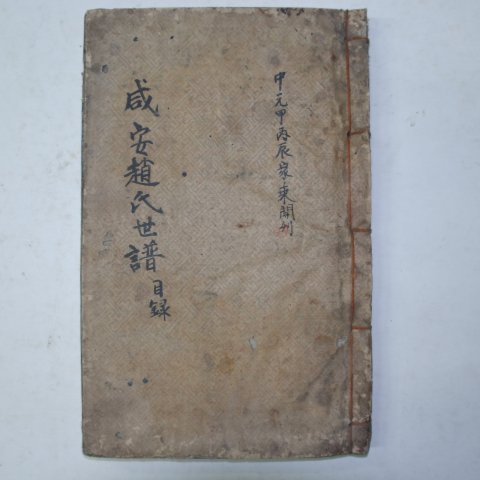 咸安趙氏世譜目錄
中元甲丙辰家乘開刊